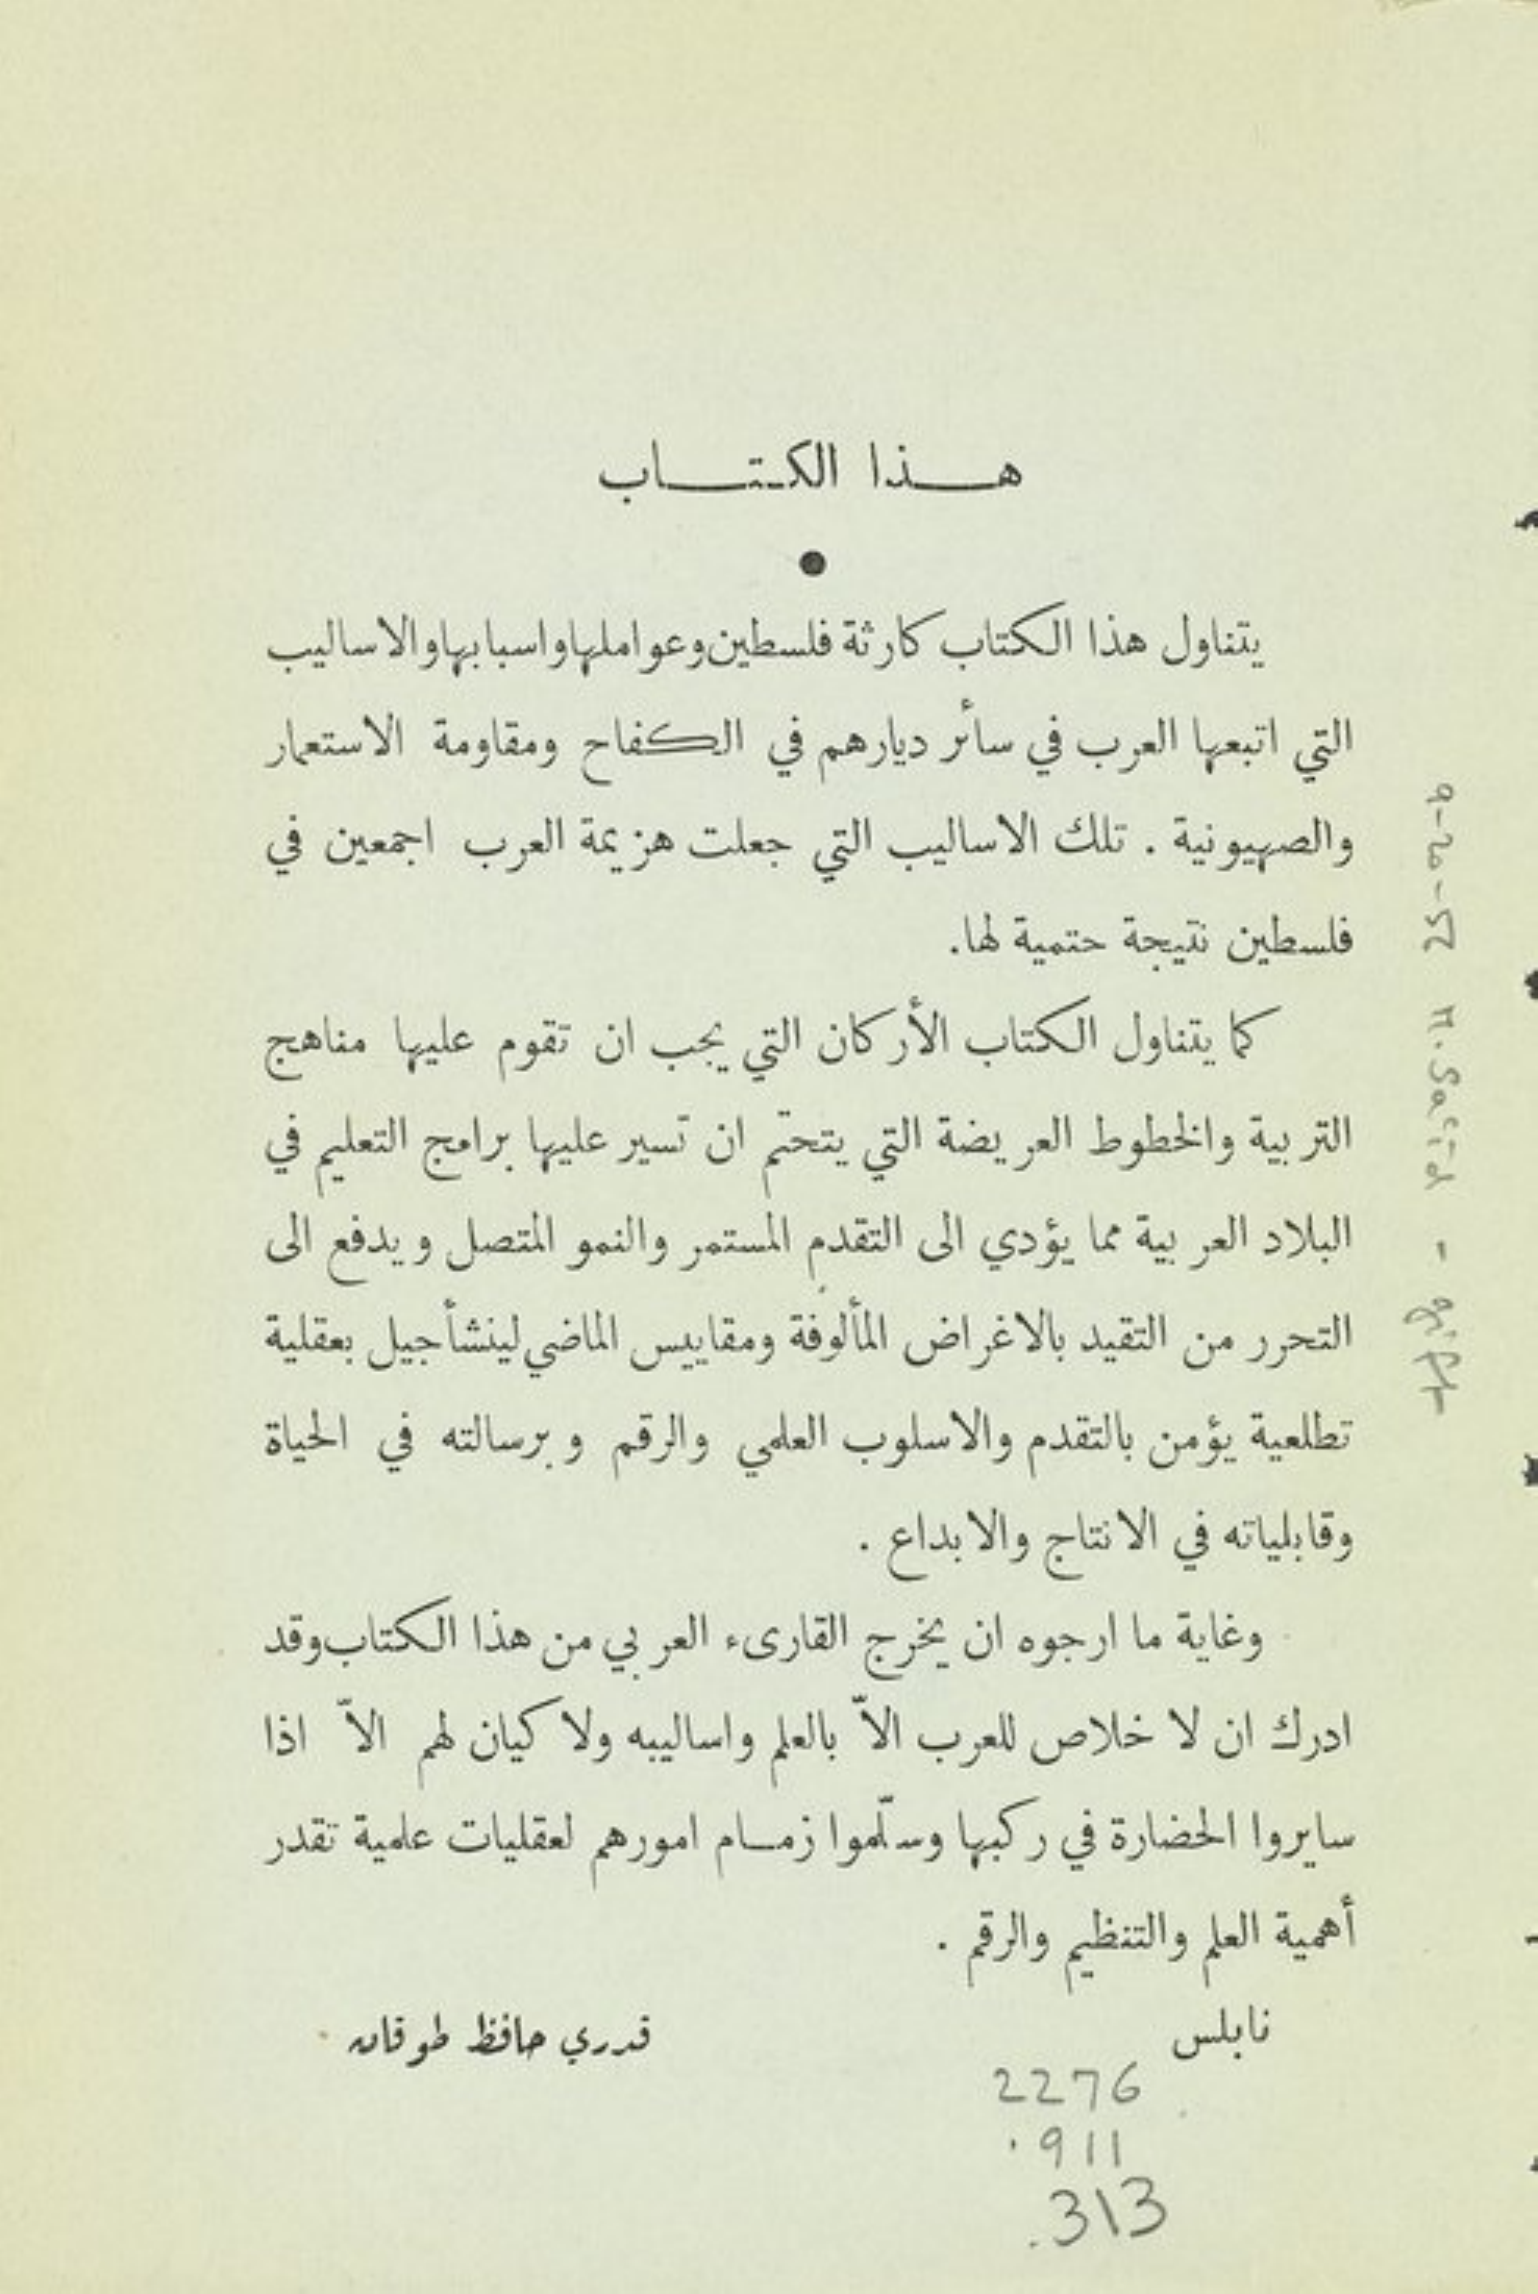 هـــذا الكتـــاب
●
يتناول هذا الكتاب كارثة فلسطين وعواملها واسبابها والاساليب
التي اتبعها العرب في سائر ديارهم في الكفاح ومقاومة الاستعمار
والصهيونية . تلك الاساليب التي جعلت هزيمة العرب اجمعين في
فلسطين نتيجة حتمية لها.
كما يتناول الكتاب الأركان التي يجب ان تقوم عليها مناهج
التربية والخطوط العريضة التي يتحتم ان تسير عليها برامج التعليم في
البلاد العربية مما يؤدي الى التقدم المستمر والنمو المتصل ويدفع الى
التحرر من التقيد بالاغراض المألوفة ومقاييس الماضي لينشأ جيل بعقلية
تطلعية يؤمن بالتقدم والاسلوب العلمي والرقم وبرسالته في الحياة
وقابلياته في الانتاج والابداع .
وغاية ما ارجوه ان يخرج القارىء العربي من هذا الكتاب وقد
ادرك ان لا خلاص للعرب الاّ بالعلم واساليبه ولا كيان لهم الاّ اذا
سايروا الحضارة في ركبها وسلّموا زمــام امورهم لعقليات علمية تقدر
أهمية العلم والتنظيم والرقم .
نابلس قدري حافظ طوقان
2276
.911
.313
9-20-57 M. Said - gift